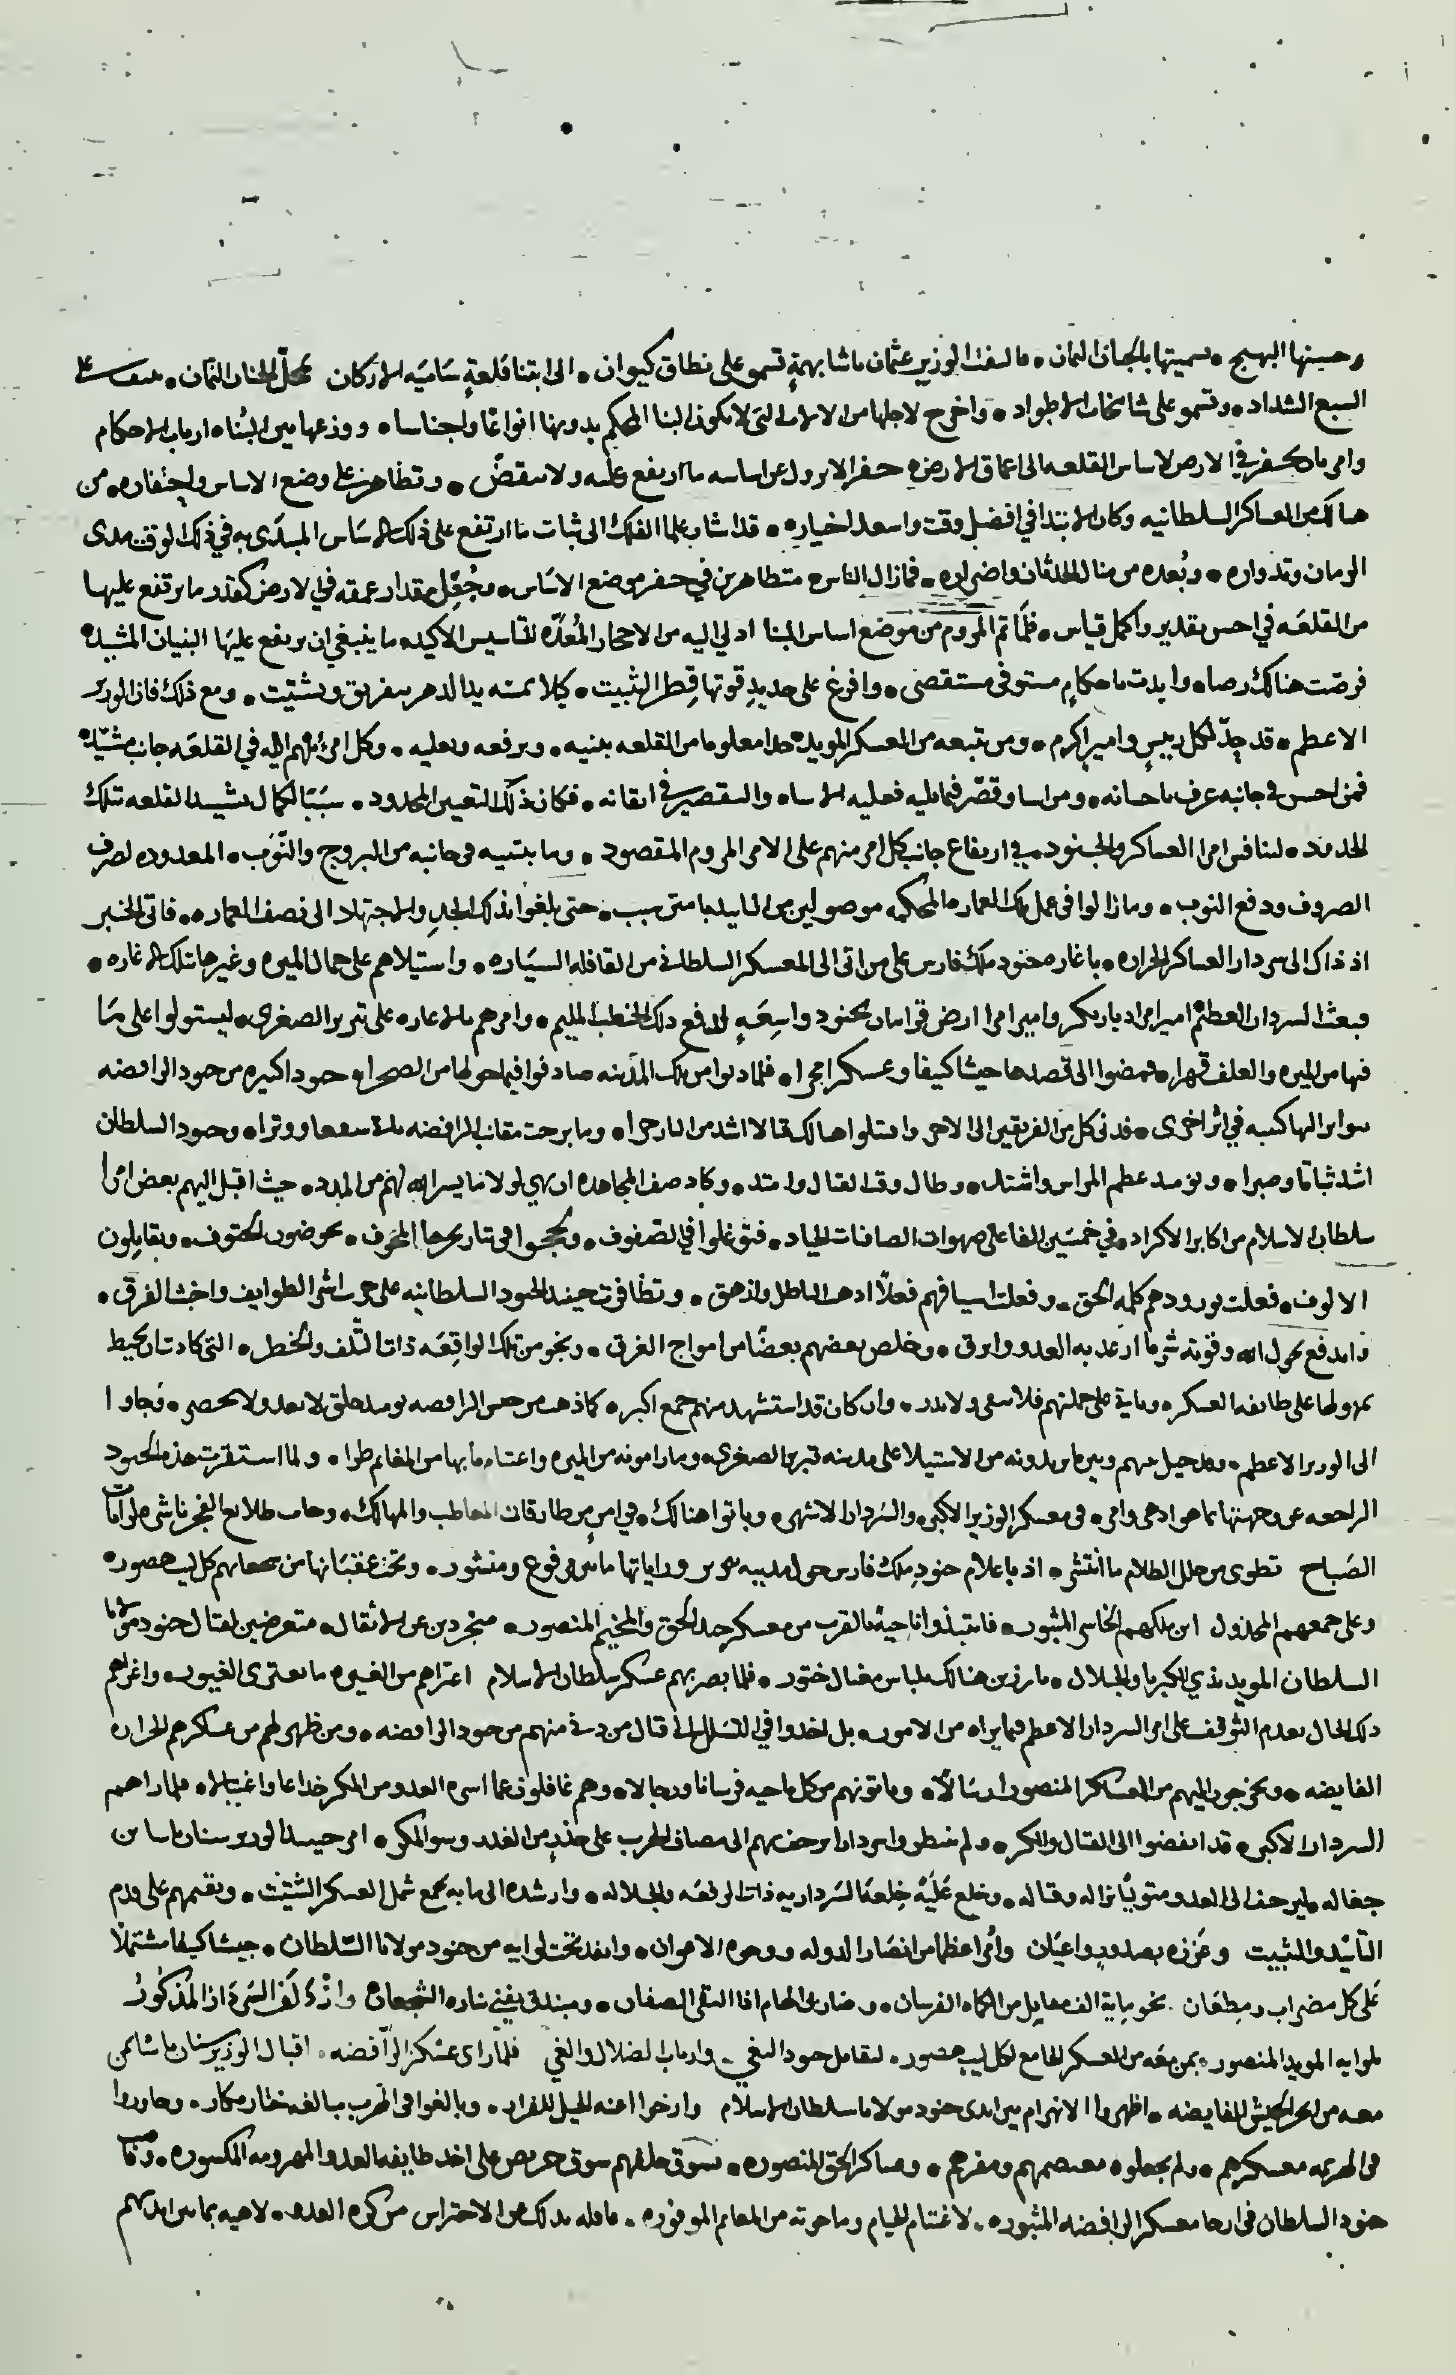 وحسنها البهيج • سميتها بالجنان الثمان • فالتفت الوزير عثمان باشا بهمة تسمو على نطاق كيوان • الى ابتنا قلعةٍ سَاميَه الاركان محلّ الجنان الثمان •
السبع الشداد • وتسمو على شامخات الاطواد • واخرج لاجلها من الالات التى لا يكون البنا المحكم بدونها انواعًا واجناسا • ووزعها بين البُناه ارباب الاحكام
وامر بان يحفر في الارض لاساس القلعه الى اعماق الارض حفرا لا يزول عن اساسه ما ارتفع عليه ولا ينقضّ • وتظاهر على وضع الاساس واحتفاره • من
هنالك من العساكر السلطانيه وكان الابتدا في افضل وقت واسعد اختياره • قد اشار علما الفلك الى ثبات ما ارتفع على ذلك الاسَاس المبتدى به في ذلك الوقت مدى
الزمان وتدواره • وبُعده من منال الحدثان واضراره • فمازال الناس متظاهرين في حفر موضع الاسَاس • وجُعِل مقدار عمقه في الارض كقدر ما يرتفع عليها
من القلعَه في احسن تقدير واكمل قياس • فلمّا تم المروم من موضع اساس البنا ادلي اليه من الاحجار المُعدّه للتأسيس الاكيد • ما ينبغي ان يرفع عليها البنيان المشيده
فرصّت هنالك رصا • وايدت باحكامٍ مستوفى مستقصى • وافرغ على حديدِ قوتها قِطر التثبيت • كيلا تمسه يد الدهر بتفريق وتشتيت • ومع ذلك فان الوزير
الاعظم • قد حدّ لكل رييسٍ واميرٍ اكرم • ومن تبعه من العسكر المويد حدا معلوما من القلعه يبنيه • ويرفعه ويعليه • وكل امرئ منهم اليه في القلعَه جانب مشيّده
فمن احسن في جانبه عرف باحسانه • ومن اسا وقصّر فيما يليه فعليه الاساه والتقصير في اتقانه • فكان ذلك التعيين المحدود • سبَبًا لكمال تشييد القلعه تلك
الحدود • لتنافس امرا العساكر والجنود • في ارتفاع جانب كل امر منهم على الامر المروم المقصود • وما يبتنيه في جانبه من البروج والنّوَب • المعدوده لصرف
الصروف ودفع النوب • ومازالوا في عمل تلك العماره المحكمه موصولين من التاييد بامتن سبب • حتى بلغوا بذلك الجد والاجتهاد الى نصف العماره • فاتى الخبر
اذ ذاك الى سردار العساكر الجراره • باغاره جنود ملك فارس على من اتى الى المعسكر السلطاني من القافله السيّاره • واستيلاهم على جمال الميره وغيرها تلك الاغاره •
فبعث السردار العظم امير امرا ديار بكر وامير امرا ارض قرامان بجنود واسِعَه لدفع ذلك الخطب المليم • وامرهم بالاغاره على تبريز الصغرى • ليستولوا على مَا
فيها من الميره والعلف قهرا • فمضوا الى قصدها جيشا كثيفا وعسكرا مجرا • فلما دنوا من تلك المَدينه صادفوا فيما حولها من الصحرا • جنودا كثيره من جنود الرافضه
سواير الهاكتيبه في اثر اخرى • فدنى كل من الفريقين الى الاخر واقتتلوا هنالك قتالا اشد من النار حرا • وما برحت مقانب الرافضه شفعا ووترا • وجنود السلطان
اشد ثباتًا وصبرا • ويومئذ عظم المراس واشتد • وطال وقت القتال وامتد • وكاد صف المجاهده ان يهي لولا ما يسر الله لهم من المدد • حيث اقبل اليهم بعض امرا
سلطان الاسلام من اكابر الاكراد • في خمسَين الفا على صهوات الصافنات الجياد • فتوغلوا في الصفوف • ولججوا فى تيار بحرها المخوف • يخوضون الحتوف • ويقابلون
الالوف • فعلت بورودهم كلمه الحق • وفعلت اسيافهم فعلًا ادهب الباطل وازهق • وتظافرت حينئذ الجنود السلطانيه على حرب اشر الطوايف واخبث الفرق •
فاندفع بحول الله وقوته شر ما ارعد به العدو وابرق • وخلص بعضهم بعضًا من امواج الغرق • ونجو من تلك الواقِعَه ذات التّلف والخطر • التي كادت ان تحيط
بهولها على طايفه العسكر • وتاتي على جملتهم فلا تبقى ولا تذر • وان كان قد استشهد منهم جمع اكبر • كما ذهب من جيش الرافضه يومئذ خلق لا يعد ولا يحصر • فجاوا
الى الوزير الاعظم • وقد حيل بينهم وبين ما يريدونه من الاستيلا على مدينه تبريز الصغرى • وما راموه من الميره واغتنام ما بها من المغانم طرا • ولما استقرت هذه الجنود
الراجعه عن وجهتها بما هو ادهى وامر • في معسكر الوزير الاكبر والسّردار الاشهر • وباتوا هنالك • في امنٍ من طارقات المعاطب والمهالك • وجات طلايع الفجر ناشره رايات
الصَباح تطوى من حلل الظلام ما انتشر • اذ باعلام جنود ملك فارس حول مدينه تبريز وراياتها ما بين مرفوع ومنشور •
وعلى جمعهم المخذول ابن ملكهم الخاسر المثبور • فانتبذوا ناحيةً بالقرب من معسكر جند الحق والمخيم المنصور • متجردين عن الاثقال • متعرضين لقتال جنود مَولانا
السلطان المويد بذي الكبريا والجلال • بارزين هنالك بلباس مختال ختور • فلما بصر بهم عسكر سلطان الاسلام اعتراهم من الغيره ما يعترى الغيور • واغراهم
ذلك الحال بعدم التوقف على امر السردار الاعظم فيما يراه من الامور • بل اخدوا في التسلل الى قتال من دنى منهم من جنود الرافضه • ومن ظهر لهم من عسكرهم الجراره
الفايضه • ويخرجون اليهم من المعسكر المنصور ارسَالًا • وياتونهم من كل ناحيه فرسانا ورجالا • وهم غافلون عما اسره العدو من المكر خداعا واغتيالا • فلما راهم
السردار الاكبر • قد انفضوا الى القتال والكر • ولم ينتظروا سردارا يزحف بهم الى مصاف الحرب على حذرٍ من الغدر وسو المكر • امر حينئذ الوزير سنان باشا بن
جغاله • ليزحف الى العدو متوليًا نزاله وقتاله • وخلع عَليه خِلعَه السّرداريه ذات الرفعَه والجلاله • وارشده الى ما به يجمع شمل العسكر الشتيت • ويقيمهم على قدم
التأييد والتثبيت وعززه بصدورٍ واعيَان وامرا عظما من انصَار الدوله ووجوه الاعوان • وانفد تحت لوايه من جنود مولانا السّلطان • جيشا كثيفا مشتملًا
عَلى كل مضراب ومِطعَان . نحو مِايه الف مقاتل من الكماه الفرسان • وضاربي الهام اذا التقى الصفان • ومبندقٍ يفني بناره الشجعان وازْدَلَفَ السَردَار المَذكورُ
بلوايه المويد المنصور • بمن معَه من العسكر الجامع لكل ليث هصور . لتقابل جنود البغي . وارباب الضلال والغيّ فلمّا راى عَسْكر الرافضه . اقبال الوزير سنان باشا بمن
معه من ابحر الجيش الفايضه • اظهروا الانهزام بين ايدى جنود مولانا سلطان الاسلام وارخوا اعنه الخيل للفرار • وبالغوا فى الهرب مبالغه ختار مكار • وجاوزوا
فى الهزيمه معسكرهم • ولم يجعلوه معتصمهم ومفرهم • وعساكر الحق المنصوره • تسوق خلفهم سوق حريص على اخد طايفه العدو المهزومه المكسوره •
جنود السلطان في ارجا معسكر الرافضه المثبوره • لاغتنام الخيام وما حوته من المغانم الموفوره • غافله بذلك عن الاحتراس من كره العدو • لاهيه بما بين ايديهم